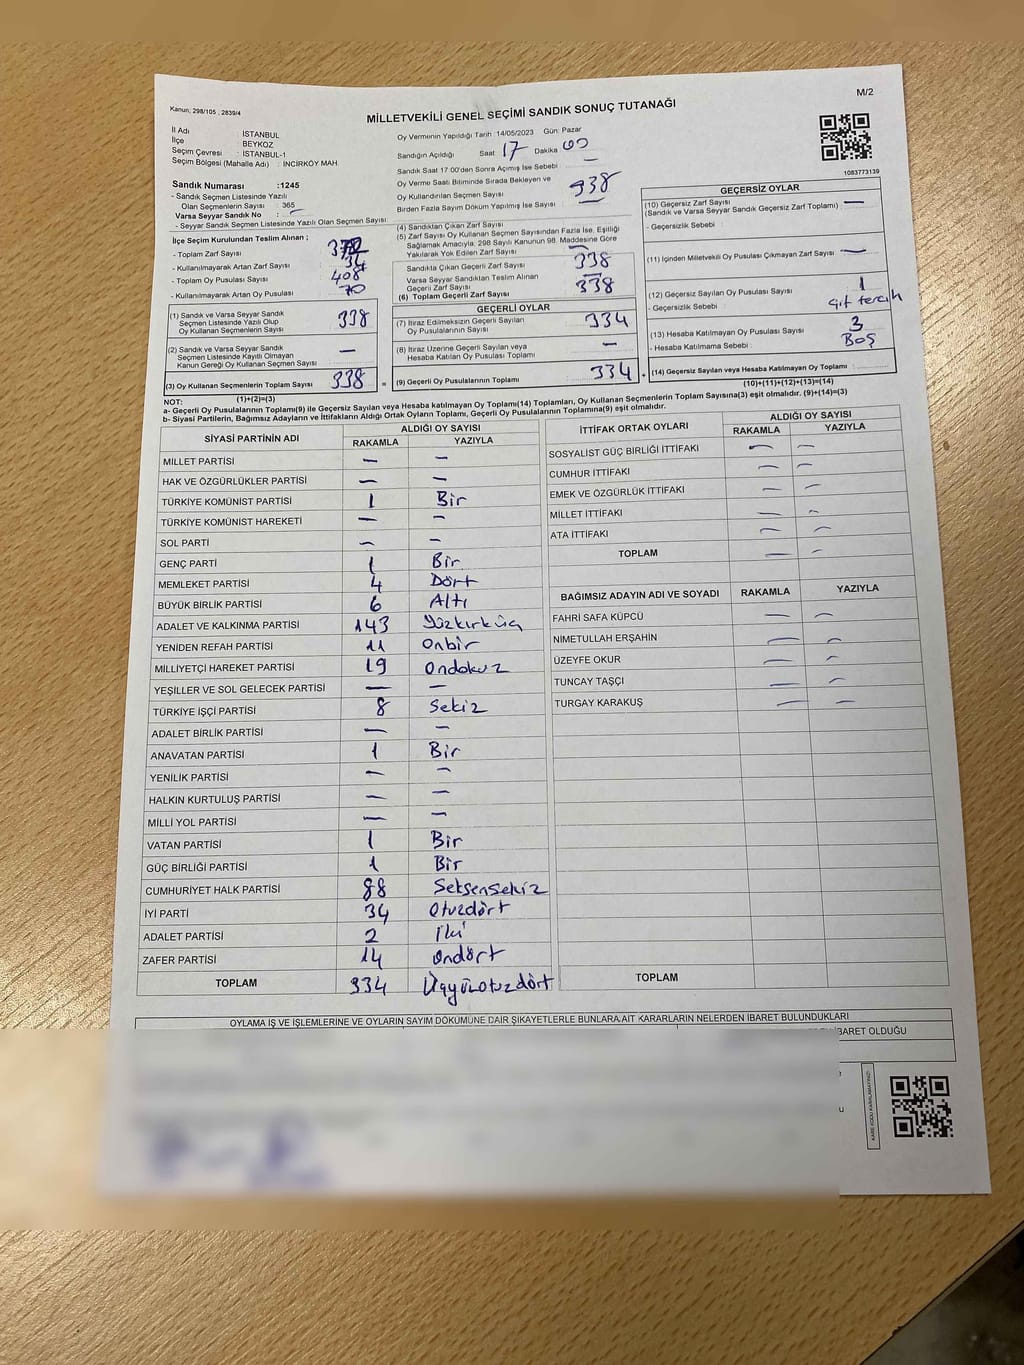 M/2
Kanun; 298/105 , 2839/4
MİLLETVEKİLİ GENEL SEÇİMİ SANDIK SONUÇ TUTANAĞI
İl Adı : İSTANBUL
İlçe : BEYKOZ
Seçim Çevresi : İSTANBUL-1
Seçim Bölgesi (Mahalle Adı) : İNCİRKÖY MAH
Oy Vermenin Yapıldığı Tarih :14/05/2023 Gün: Pazar
Sandığın Açıldığı Saat 17 Dakika 00
Sandık Saat 17:00'den Sonra Açımış İse Sebebi —
Oy Verme Saati Bitiminde Sırada Bekleyen ve
Oy Kullandırılan Seçmen Sayısı 338
Birden Fazla Sayım Döküm Yapılmış İse Sayısı : —
1083773139
Sandık Numarası :1245
- Sandık Seçmen Listesinde Yazılı
Olan Seçmenlerin Sayısı : 365
Varsa Seyyar Sandık No : —
- Seyyar Sandık Seçmen Listesinde Yazılı Olan Seçmen Sayısı:
İlçe Seçim Kurulundan Teslim Alınan ;
- Toplam Zarf Sayısı
- Kullanılmayarak Artan Zarf Sayısı 34
- Toplam Oy Pusulası Sayısı 408
- Kullanılmayarak Artan Oy Pusulası 70
(1) Sandık ve Varsa Seyyar Sandık
Seçmen Listesinde Yazılı Olup
Oy Kullanan Seçmenlerin Sayısı 338
(2) Sandık ve Varsa Seyyar Sandık
Seçmen Listesinde Kayıtlı Olmayan
Kanun Gereği Oy Kullanan Seçmen Sayısı —
(3) Oy Kullanan Seçmenlerin Toplam Sayısı 338 =
(1)+(2)=(3)
(4) Sandıktan Çıkan Zarf Sayısı
(5) Zarf Sayısı Oy Kullanan Seçmen Sayısından Fazla İse, Eşitliği
Sağlamak Amacıyla, 298 Sayılı Kanunun 98. Maddesine Göre
Yakılarak Yok Edilen Zarf Sayısı —
Sandıkta Çıkan Geçerli Zarf Sayısı 338
Varsa Seyyar Sandıktan Teslim Alınan
Geçerli Zarf Sayısı —
(6) Toplam Geçerli Zarf Sayısı 338
GEÇERLİ OYLAR
(7) İtiraz Edilmeksizin Geçerli Sayılan
Oy Pusulalarının Sayısı 334
(8) İtiraz Üzerine Geçerli Sayılan veya
Hesaba Katılan Oy Pusulası Toplamı —
(9) Geçerli Oy Pusulalarının Toplamı 334 +
GEÇERSİZ OYLAR
(10) Geçersiz Zarf Sayısı —
(Sandık ve Varsa Seyyar Sandık Geçersiz Zarf Toplamı) :
- Geçersizlik Sebebi :
(11) İçinden Milletvekili Oy Pusulası Çıkmayan Zarf Sayısı —
(12) Geçersiz Sayılan Oy Pusulası Sayısı 1
- Geçersizlik Sebebi : Çift tercih
(13) Hesaba Katılmayan Oy Pusulası Sayısı 3
- Hesaba Katılmama Sebebi : Boş
(14) Geçersiz Sayılan veya Hesaba Katılmayan Oy Toplamı :
(10)+(11)+(12)+(13)=(14)
NOT:
a- Geçerli Oy Pusulalarının Toplamı(9) ile Geçersiz Sayılan veya Hesaba Katılmayan Oy Toplamı(14) Toplamları, Oy Kullanan Seçmenlerin Toplam Sayısına(3) eşit olmalıdır. (9)+(14)=(3)
b- Siyasi Partilerin, Bağımsız Adayların ve İttifakların Aldığı Ortak Oyların Toplamı, Geçerli Oy Pusulalarının Toplamına(9) eşit olmalıdır.
SİYASİ PARTİNİN ADI ALDIĞI OY SAYISI
RAKAMLA YAZIYLA
MİLLET PARTİSİ — —
HAK VE ÖZGÜRLÜKLER PARTİSİ — —
TÜRKİYE KOMÜNİST PARTİSİ 1 Bir
TÜRKİYE KOMÜNİST HAREKETİ — —
SOL PARTİ — —
GENÇ PARTİ 1 Bir
MEMLEKET PARTİSİ 4 Dört
BÜYÜK BİRLİK PARTİSİ 6 Altı
ADALET VE KALKINMA PARTİSİ 143 Yüzkırküç
YENİDEN REFAH PARTİSİ 11 Onbir
MİLLİYETÇİ HAREKET PARTİSİ 19 Ondokuz
YEŞİLLER VE SOL GELECEK PARTİSİ — —
TÜRKİYE İŞÇİ PARTİSİ 8 Sekiz
ADALET BİRLİK PARTİSİ — —
ANAVATAN PARTİSİ 1 Bir
YENİLİK PARTİSİ — —
HALKIN KURTULUŞ PARTİSİ — —
MİLLİ YOL PARTİSİ — —
VATAN PARTİSİ 1 Bir
GÜÇ BİRLİĞİ PARTİSİ 1 Bir
CUMHURİYET HALK PARTİSİ 88 Seksensekiz
İYİ PARTİ 34 Otuzdört
ADALET PARTİSİ 2 İki
ZAFER PARTİSİ 14 Ondört
TOPLAM 334 Üçyüzotuzdört
İTTİFAK ORTAK OYLARI ALDIĞI OY SAYISI
RAKAMLA YAZIYLA
SOSYALİST GÜÇ BİRLİĞİ İTTİFAKI — —
CUMHUR İTTİFAKI — —
EMEK VE ÖZGÜRLÜK İTTİFAKI — —
MİLLET İTTİFAKI — —
ATA İTTİFAKI — —
TOPLAM — —
BAĞIMSIZ ADAYIN ADI VE SOYADI RAKAMLA YAZIYLA
FAHRİ SAFA KÜPCÜ — —
NİMETULLAH ERŞAHİN — —
ÜZEYFE OKUR — —
TUNCAY TAŞÇI — —
TURGAY KARAKUŞ — —
TOPLAM
OYLAMA İŞ VE İŞLEMLERİNE VE OYLARIN SAYIM DÖKÜMÜNE DAİR ŞİKAYETLERLE BUNLARA AİT KARARLARIN NELERDEN İBARET BULUNDUKLARI
İBARET OLDUĞU
KARE KODU KARALAMAYINIZ!